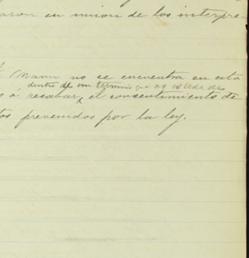 aron en union de los interpre
no se encuentra en esta
dentro de un termino que no
o á recabar, el consentimiento de
os prevenidos por la ley.